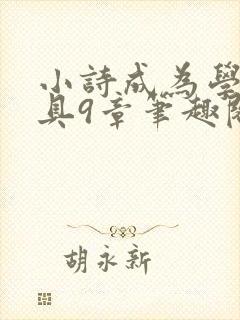 小詩成為學
具9章筆趣閣
胡永新